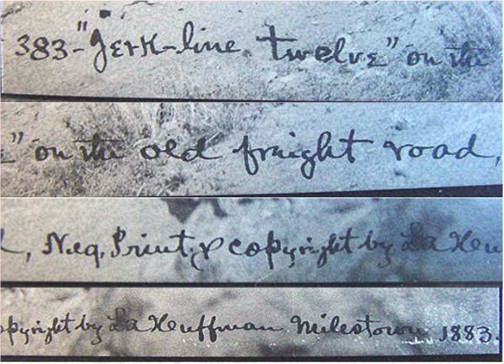 383-"Jerk-line twelve" on the
" on the old freight road
, Neg, Print, & copyright by La Heu
opyright by La Heuffman Milestown 1883